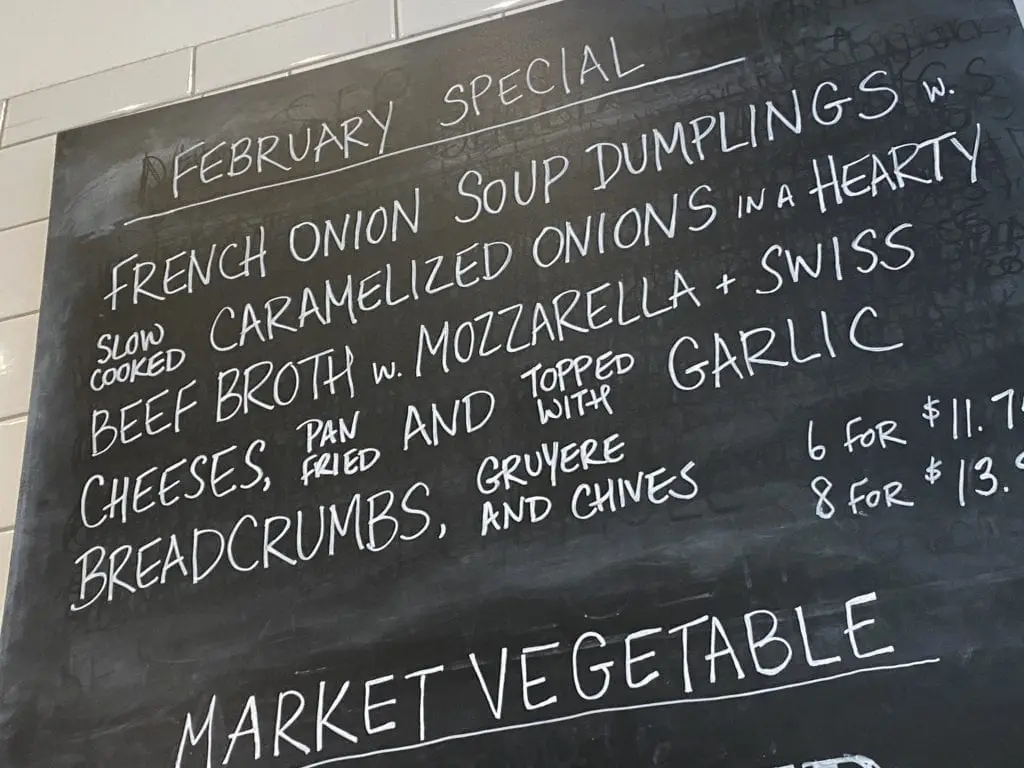 FEBRUARY SPECIAL
FRENCH ONION SOUP DUMPLINGS w.
SLOW COOKED CARAMELIZED ONIONS IN A HEARTY
BEEF BROTH w. MOZZARELLA + SWISS
CHEESES, PAN FRIED AND TOPPED WITH GARLIC
BREADCRUMBS, GRUYERE AND CHIVES
6 FOR
8 FOR
MARKET VEGETABLE